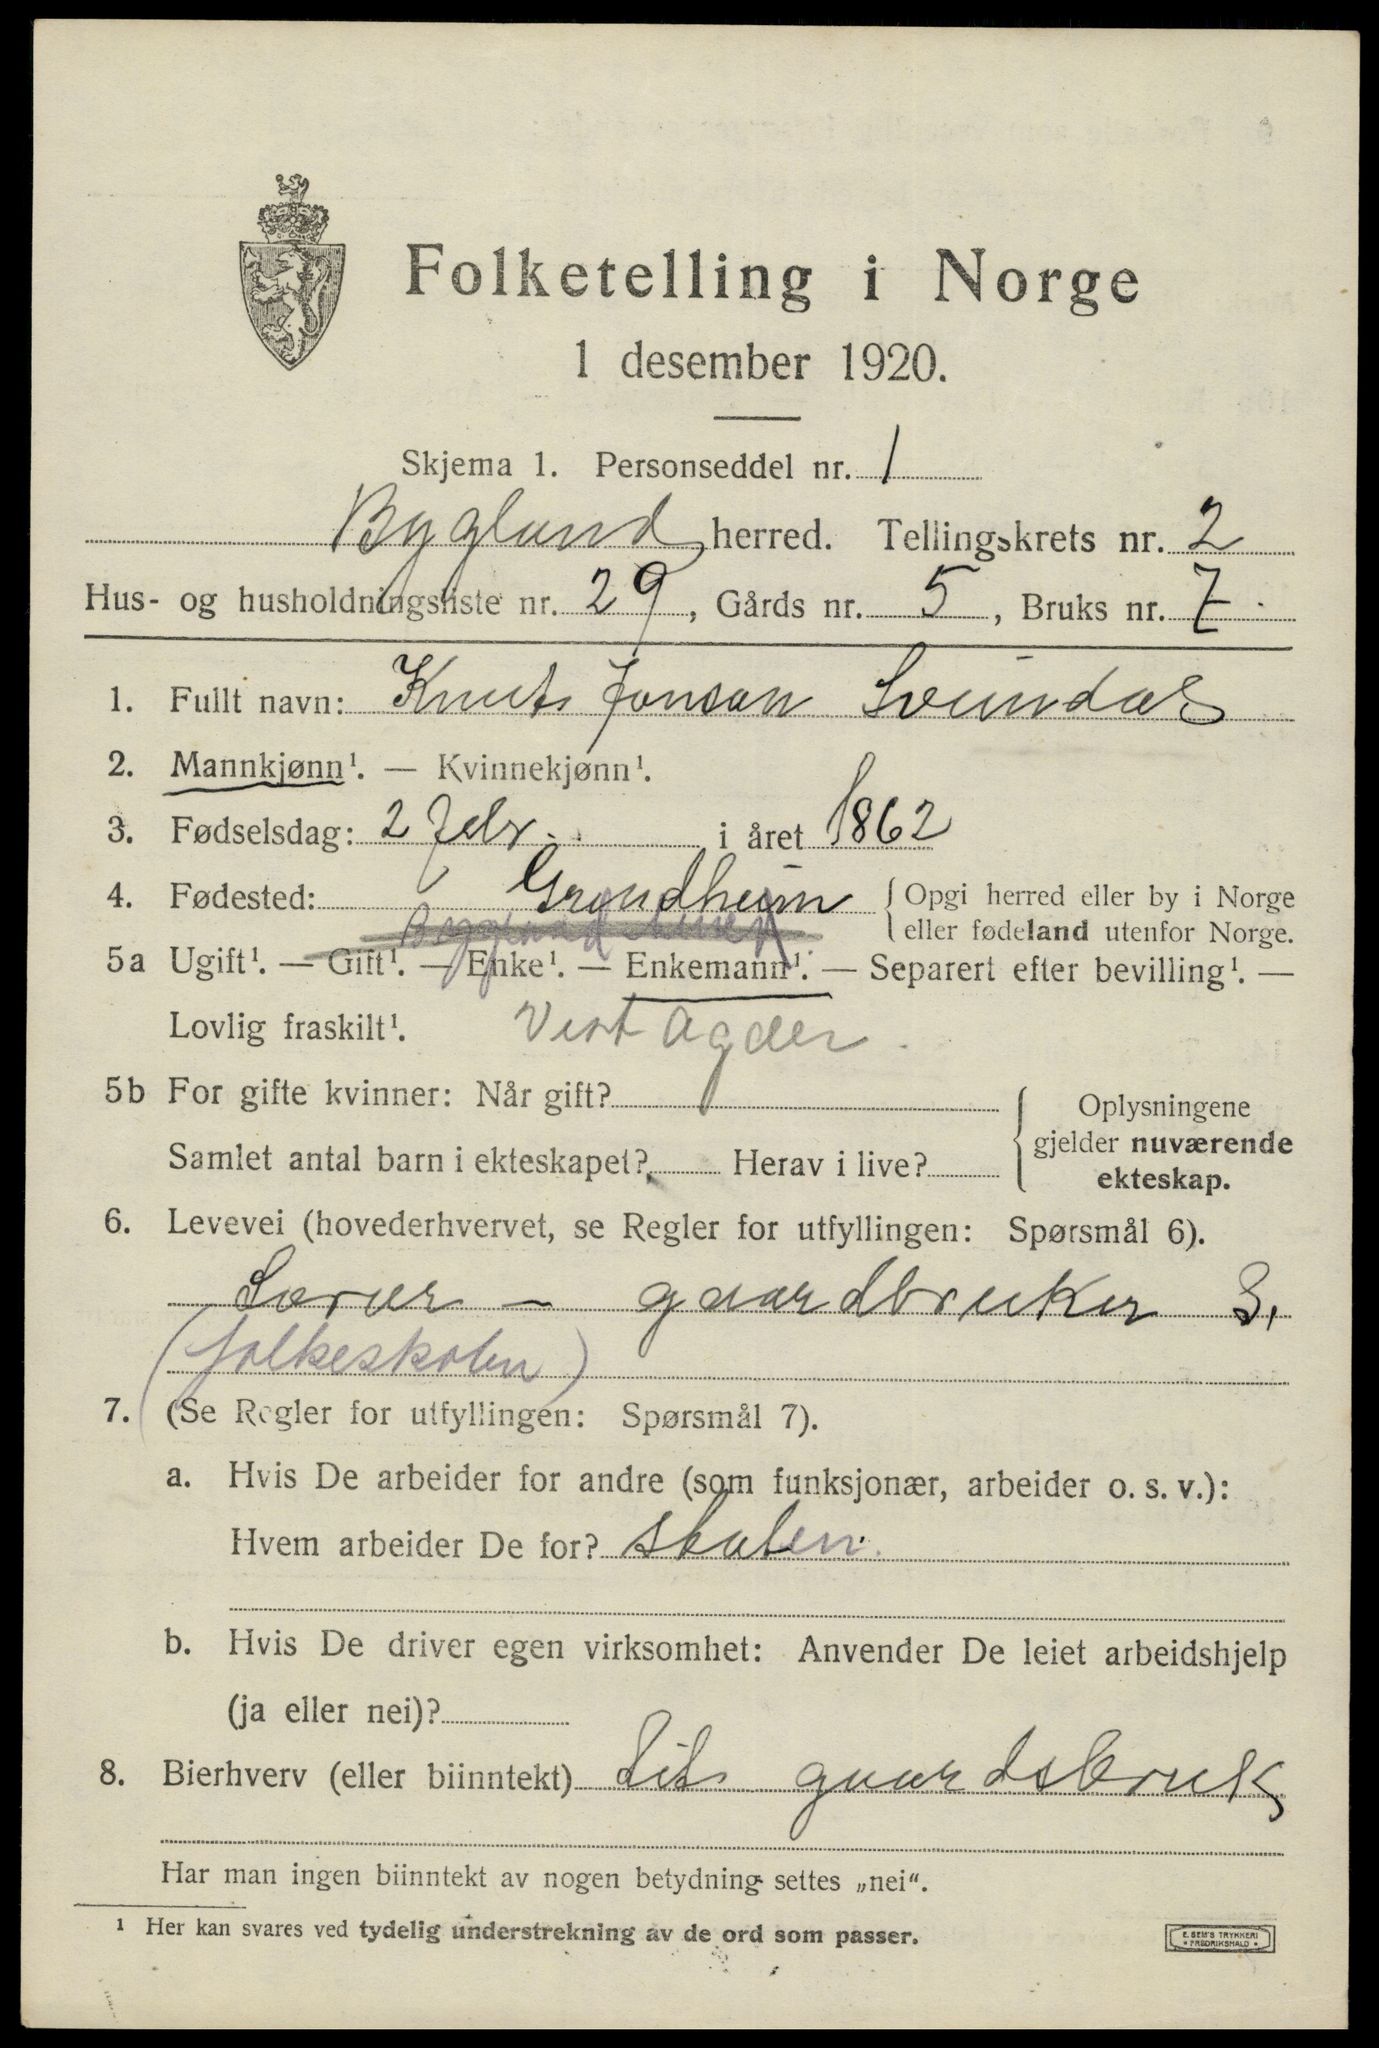 Folketelling i Norge
1 desember 1920.
Skjema 1. Personseddel nr. 1
Bygland herred. Tellingskrets nr. 2
Hus- og husholdningsliste nr. 29, Gårds nr. 5, Bruks nr. 7
1. Fullt navn: Knut Jonson Sveindal
2. Mannkjønn¹. — Kvinnekjønn¹.
3. Fødselsdag: 2 febr. i året 1862
4. Fødested: Grindheim { Opgi herred eller by i Norge
eller fødeland utenfor Norge.
5a Ugift¹. — Gift¹. — Enke¹. — Enkemann¹. — Separert efter bevilling¹. —
Lovlig fraskilt¹. Vest Agder.
5b For gifte kvinner: Når gift? { Oplysningene
gjelder nuværende
Samlet antal barn i ekteskapet? Herav i live? ekteskap.
6. Levevei (hovederhvervet, se Regler for utfyllingen: Spørsmål 6).
Lærer - gaardbruker S,
(folkeskolen)
7. (Se Regler for utfyllingen: Spørsmål 7).
a. Hvis De arbeider for andre (som funksjonær, arbeider o. s. v.):
Hvem arbeider De for? staten.
b. Hvis De driver egen virksomhet: Anvender De leiet arbeidshjelp
(ja eller nei)?
8. Bierhverv (eller biinntekt) Lit gaardsbruk
Har man ingen biinntekt av nogen betydning settes „nei“.
¹ Her kan svares ved tydelig understrekning av de ord som passer.
E. SEM'S TRYKKERI
* FREDRIKSHALD *